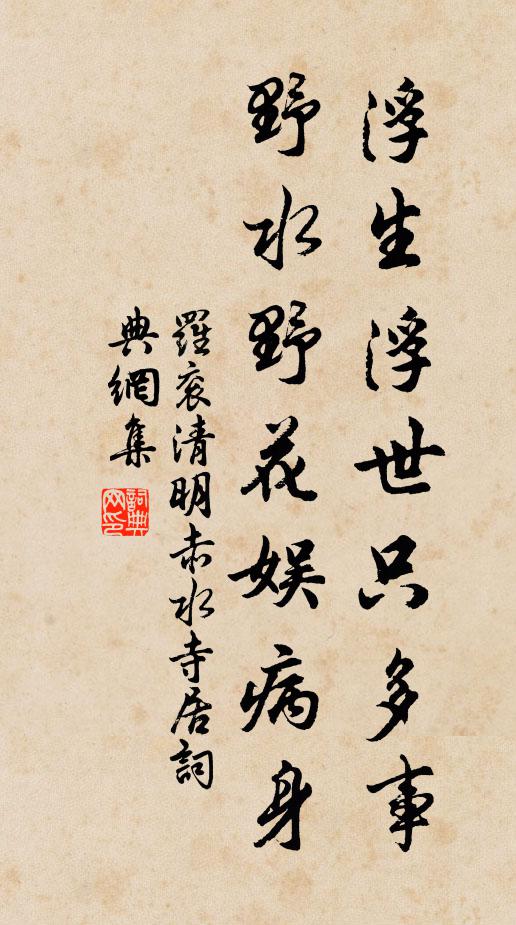 浮生浮世只多事
野水野花娱病身
羅衮清明赤水寺居詞
典網集
詞典網印